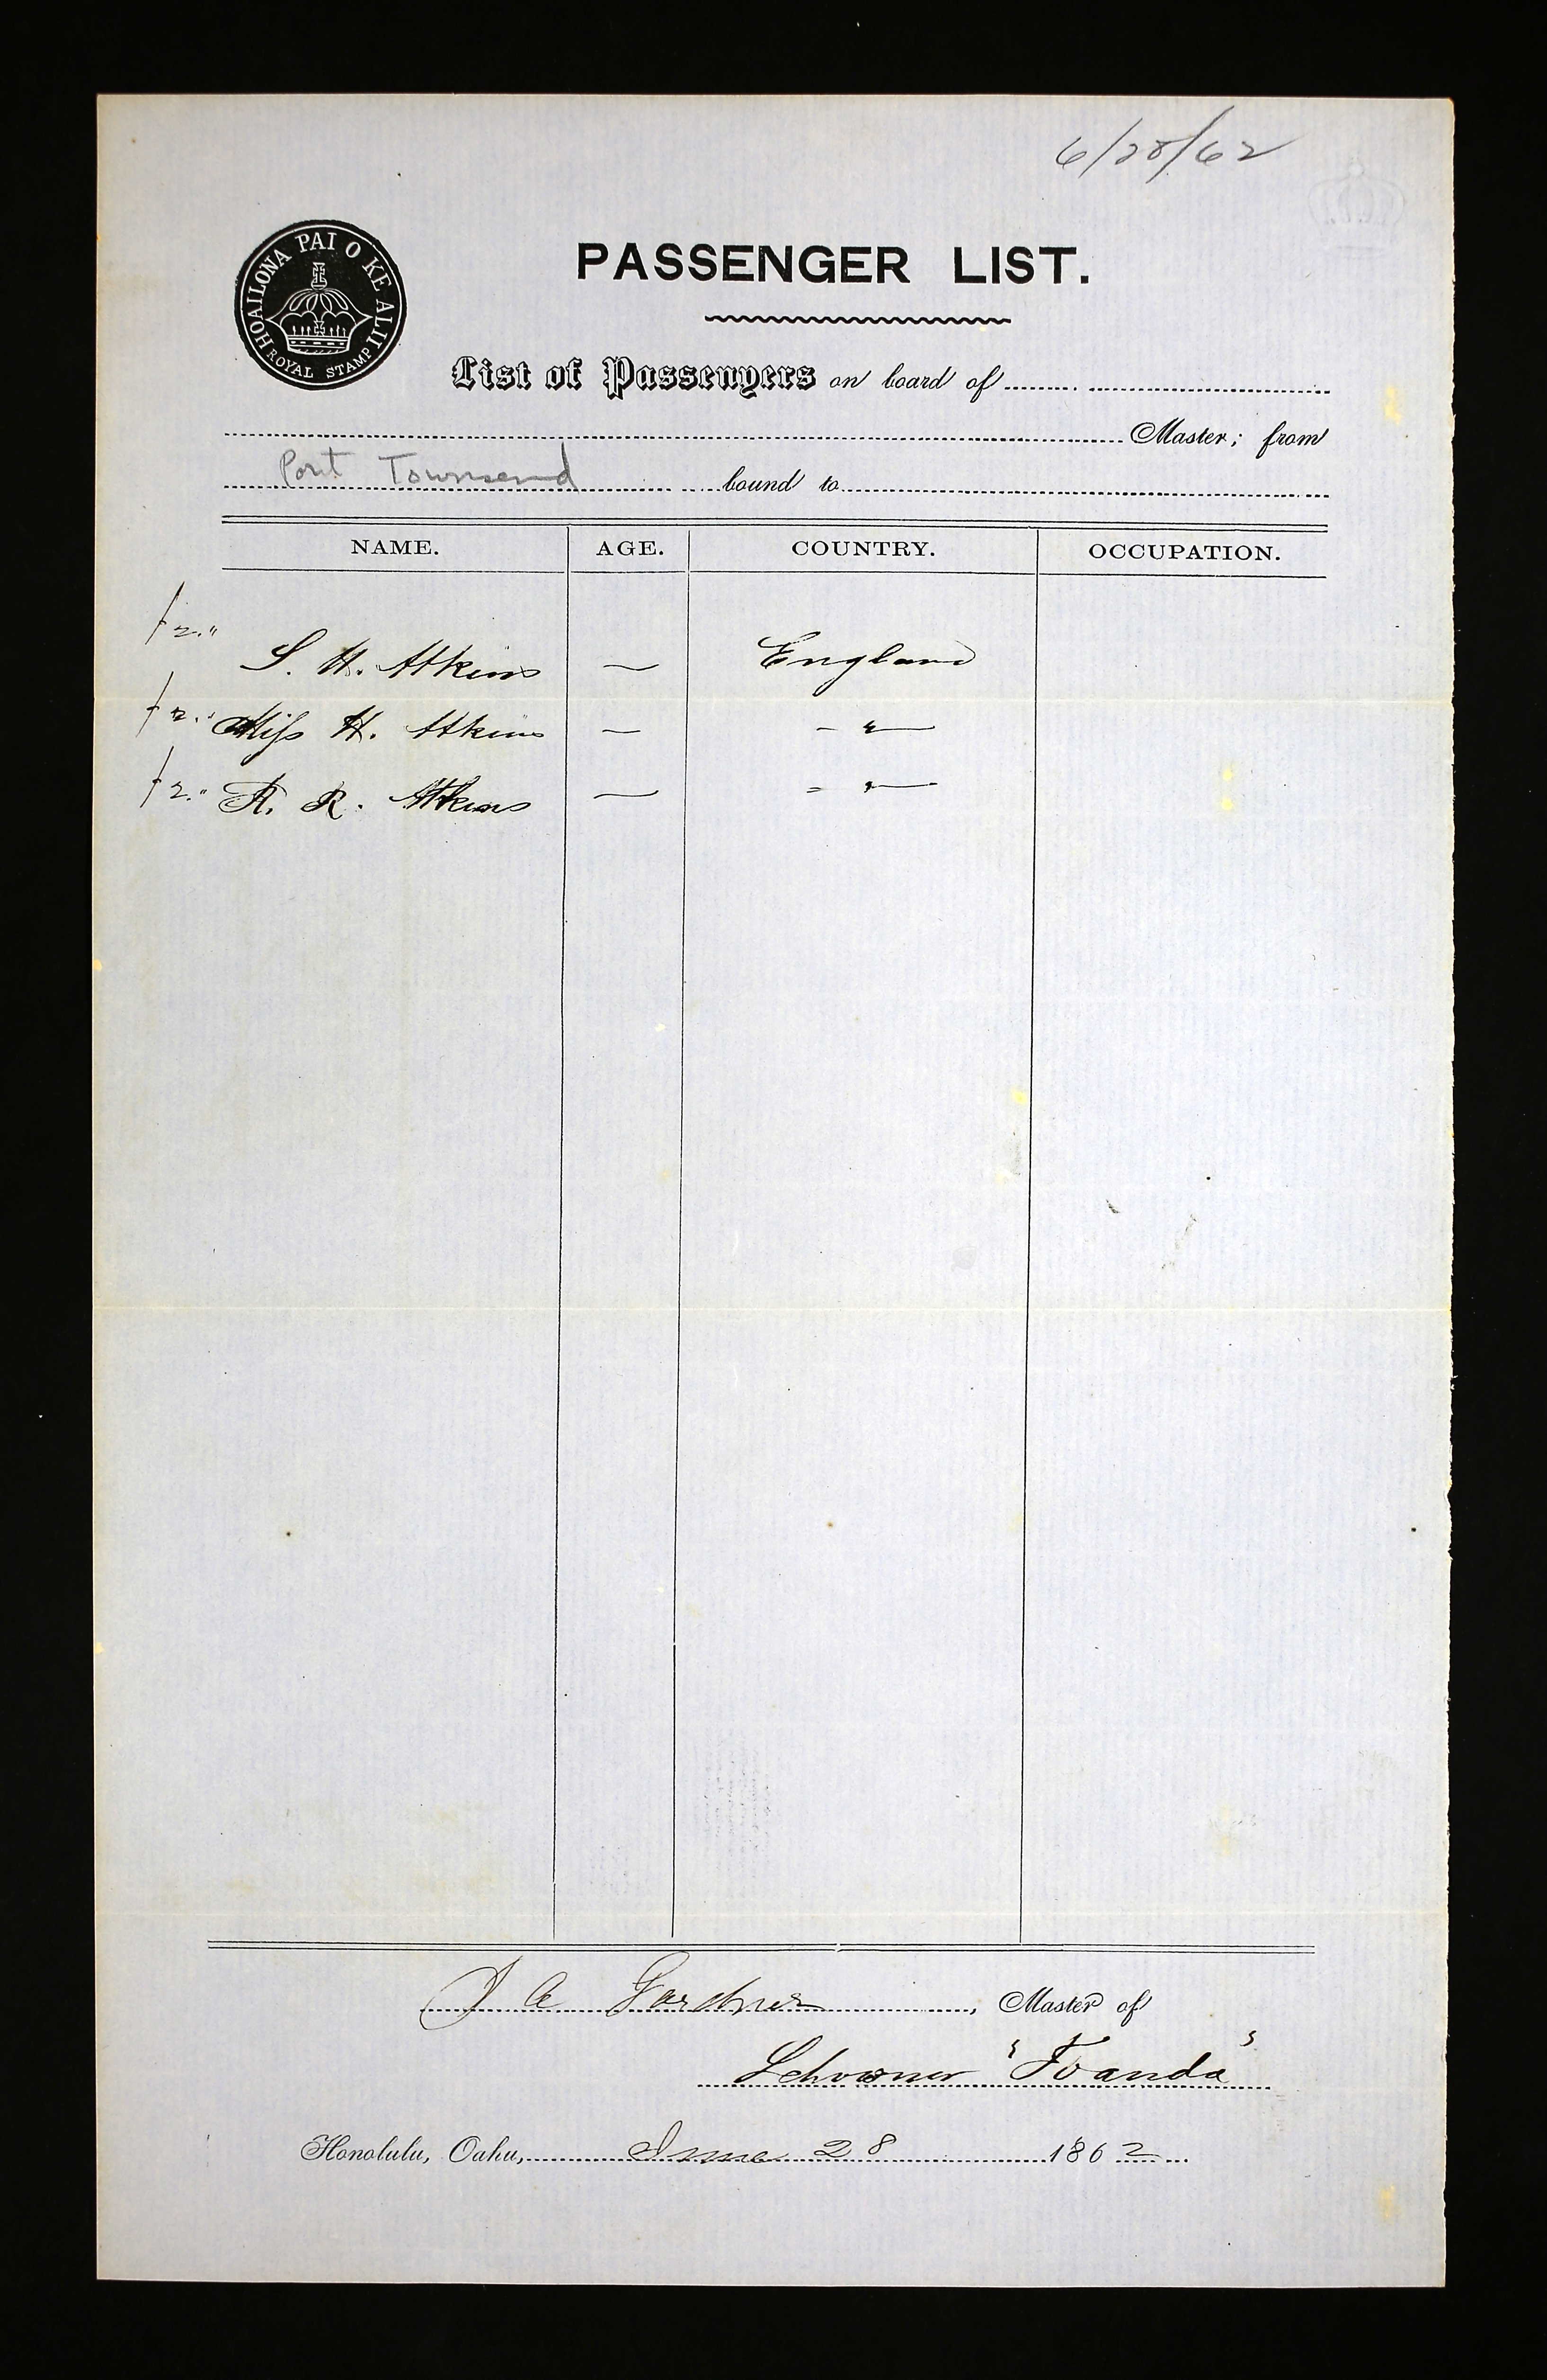 6/28/62
HOAILONA PAI O KE ALII
ROYAL STAMP
PASSENGER LIST.
List of Passengers on board of
Master; from
Port Townsend bound to
NAME. AGE. COUNTRY. OCCUPATION.
$2."
S. H. Atkins — England
$2."
Miss H. Atkins — - " —
$2."
A. R. Atkins — = " —
J A Gardner, Master of
Schooner "Toanda"
Honolulu, Oahu, June 28 1862